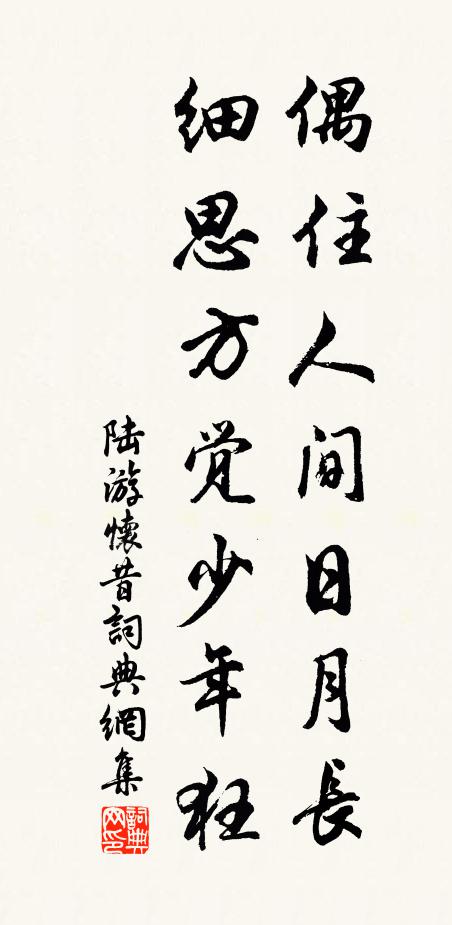 偶住人间日月長
细思方觉少年狂
陆游懷昔詞典網集
詞典网印